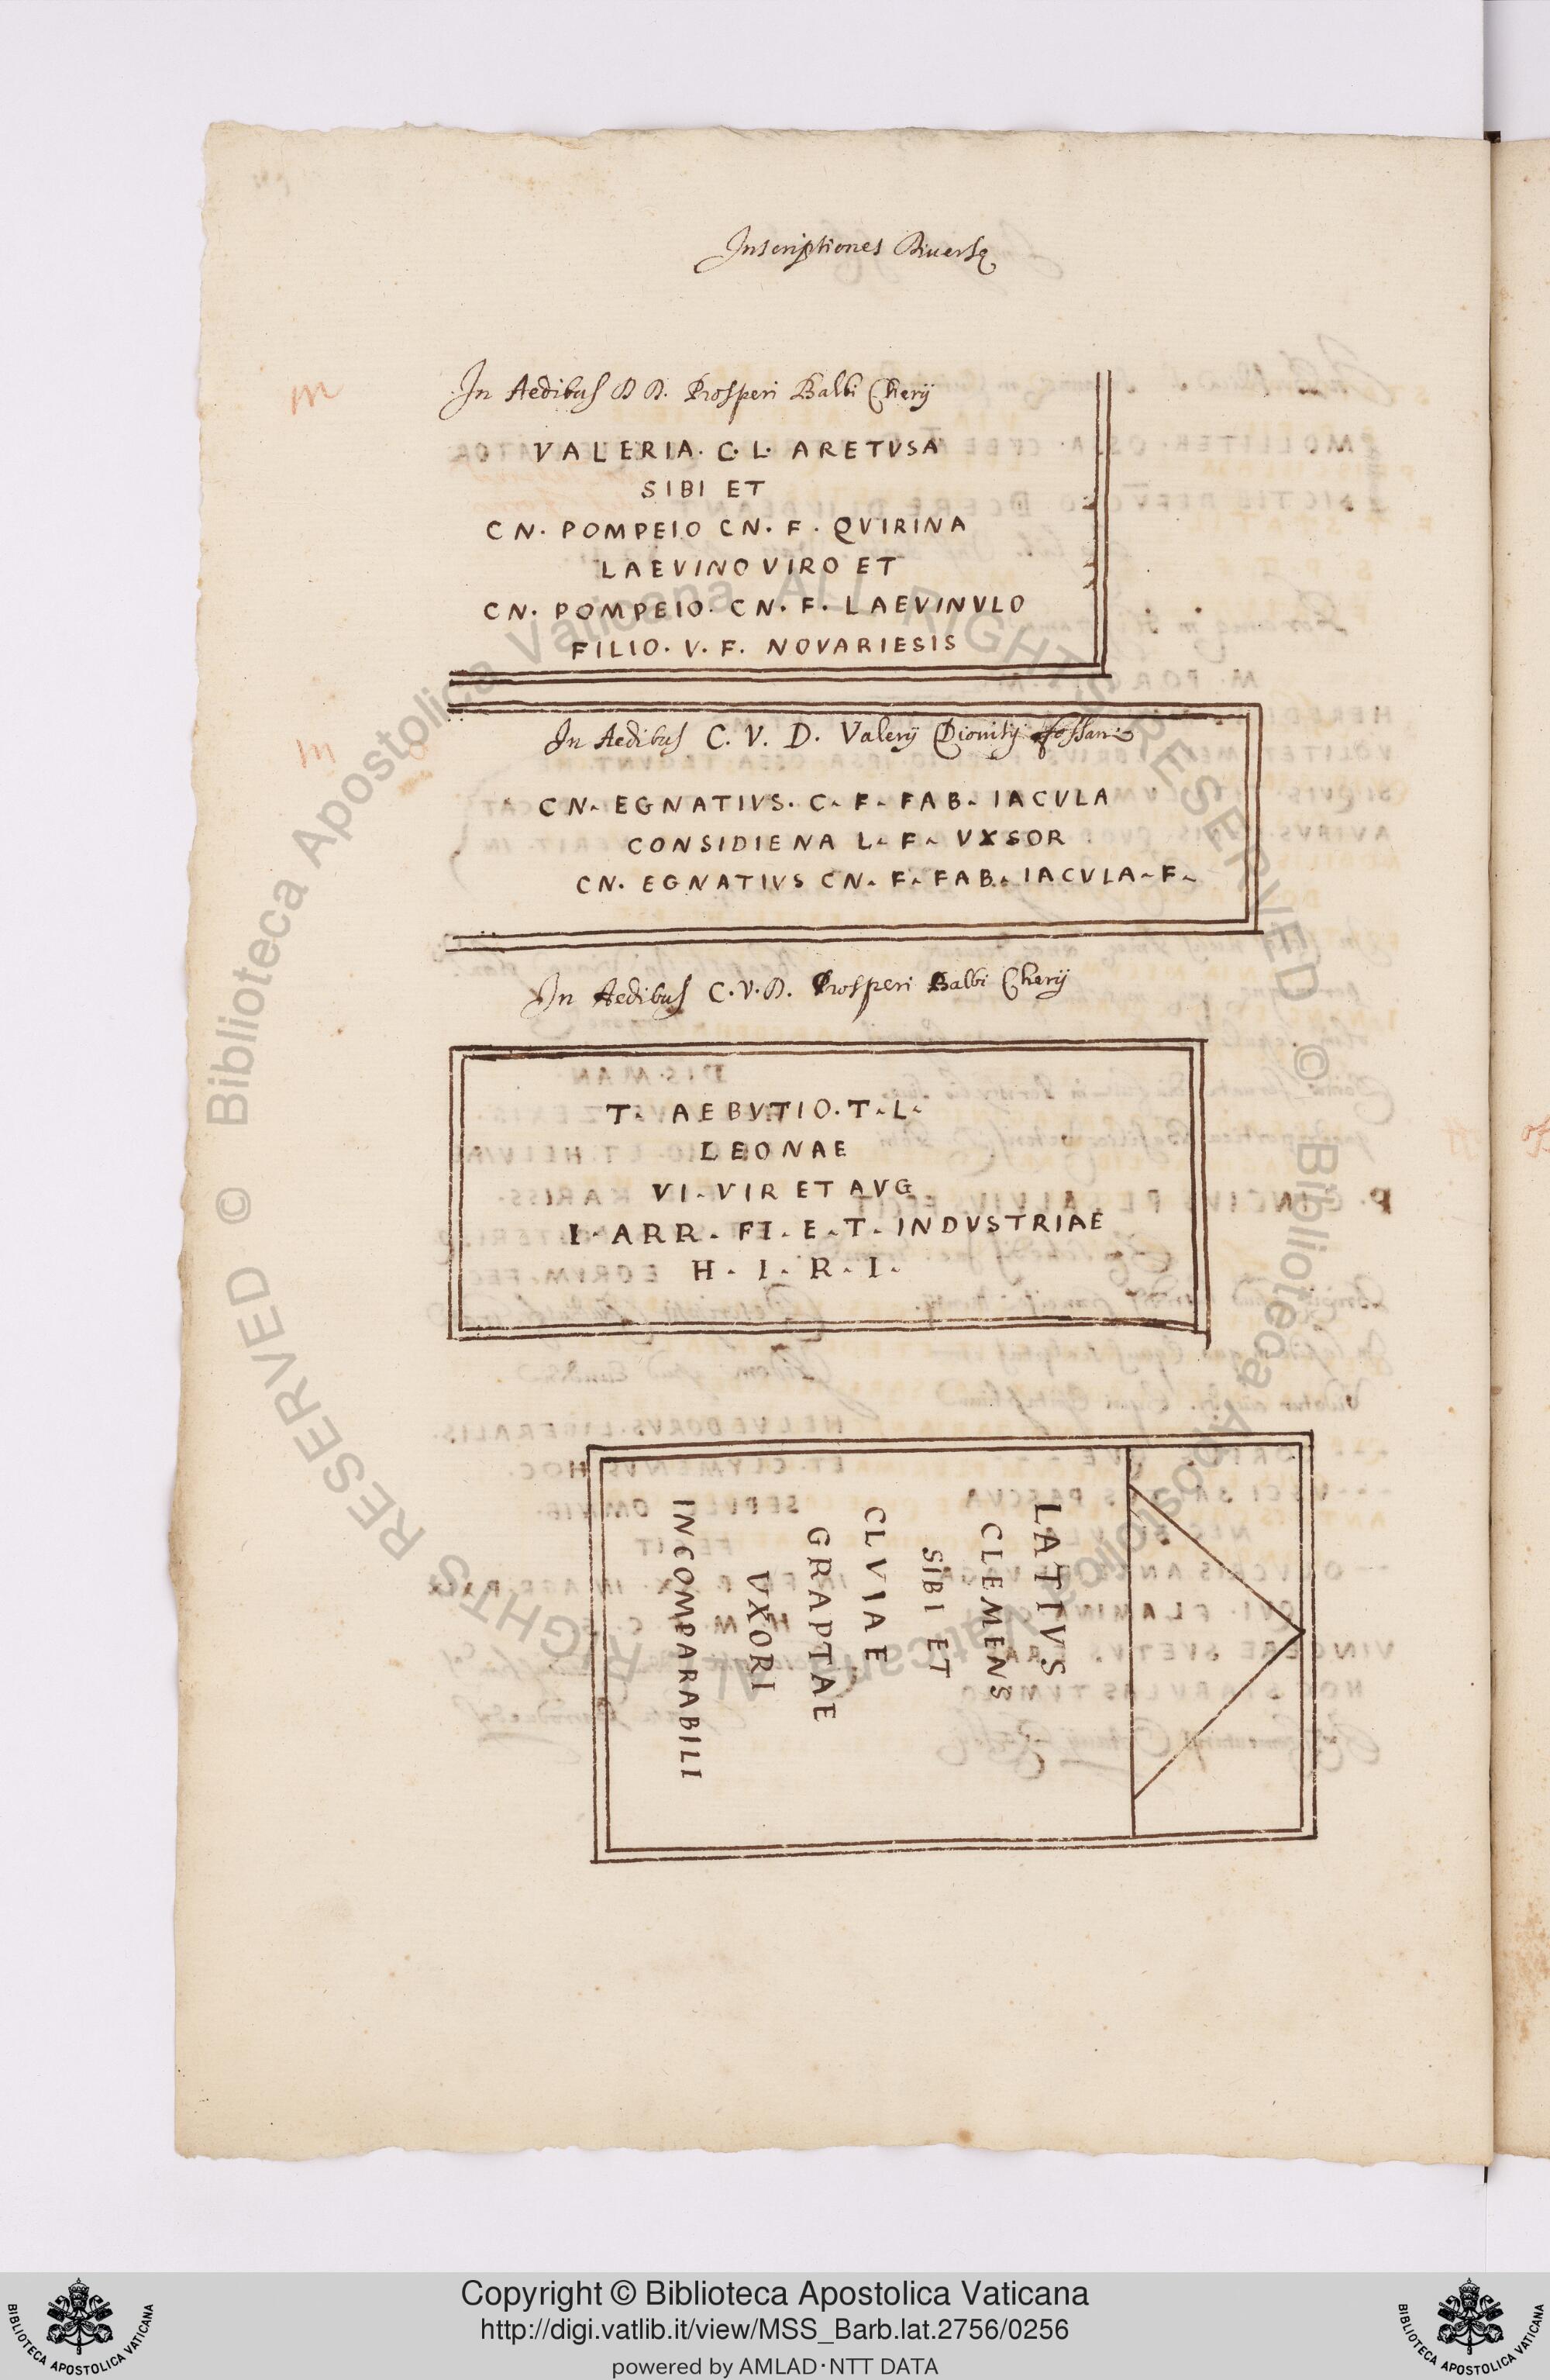 Inscriptiones Diversę
In Aedibus D D. Prosperi Balbi Cherij
VALERIA. C. L. ARETVSA
SIBI ET
CN. POMPEIO CN. F. QVIRINA
LAEVINO VIRO ET
CN. POMPEIO. CN. F. LAEVINVLO
FILIO. V. F. NOVARIESIS
In Aedibus C. V. D. Valerij Dionisij fossani
CN. EGNATIVS. C. F. FAB. IACVLA
CONSIDIENA L. F. VXSOR
CN. EGNATIVS CN. F. FAB. IACVLA. F.
In Aedibus C. V. D. Prosperi Balbi Cherij
T. AEBVTIO. T. L.
LEONAE
VI. VIR ET AVG
I. ARR. FI. E. T. INDVSTRIAE
H. I. R. I.
LATTVS
CLEMENS
SIBI ET
CLVIAE
GRAPTAE
VXORI
INCOMPARABILI
© Biblioteca Apostolica Vaticana ALL RIGHTS RESERVED © Biblioteca Apostolica Vaticana ALL RIGHTS RESERVED
Copyright © Biblioteca Apostolica Vaticana
http://digi.vatlib.it/view/MSS_Barb.lat.2756/0256
powered by AMLAD·NTT DATA
BIBLIOTECA APOSTOLICA VATICANA
BIBLIOTECA APOSTOLICA VATICANA